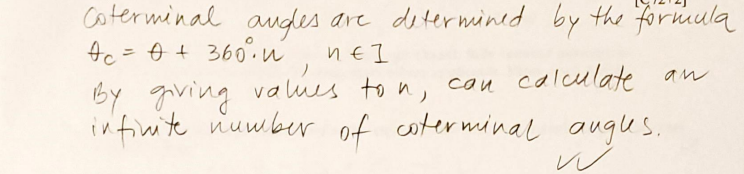 Coterminal angles are determined by the formula
θc = θ + 360°·n , n ∈ I
By giving values to n, can calculate an
infinite number of coterminal angles.